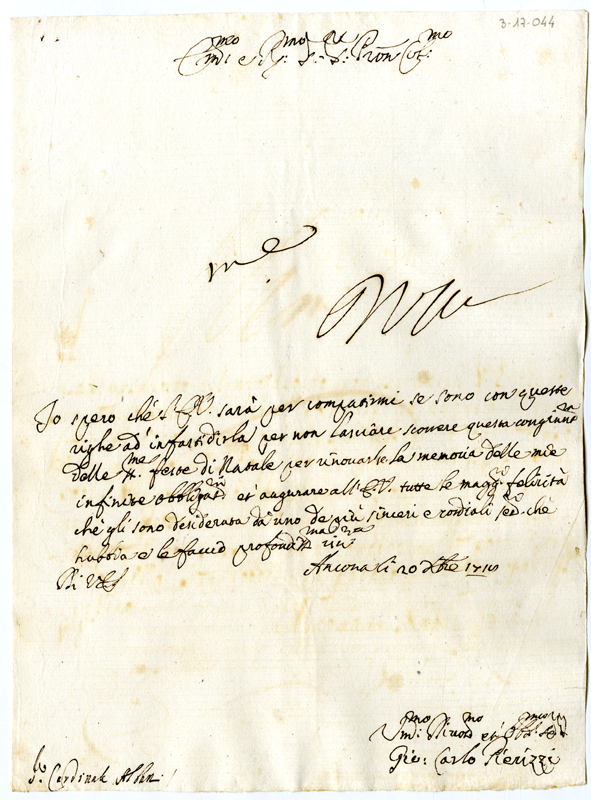 3-17-044
Em.mo e R.mo S.re S.re Pron Col.mo
Io spero che l'E.V. sarà per compatirmi se sono con queste
righe ad infastidirla per non lasciare scorrere questa congiunt.ra
delle S.me feste di Natale per rinovarle la memoria delle mie
infinite obbligaz.ni et augurare all'E.V. tutte le magg.ri felicità
che gli sono desiderate da uno de più sinceri e cordiali ser.ri che
habbia e le faccio profondiss.ma riv.za
Di V.E.
Ancona li 20 Xbre
Um.mo Divot.mo et Obl.mo
Gio: Carlo Pierizzi
S.r Cardinale